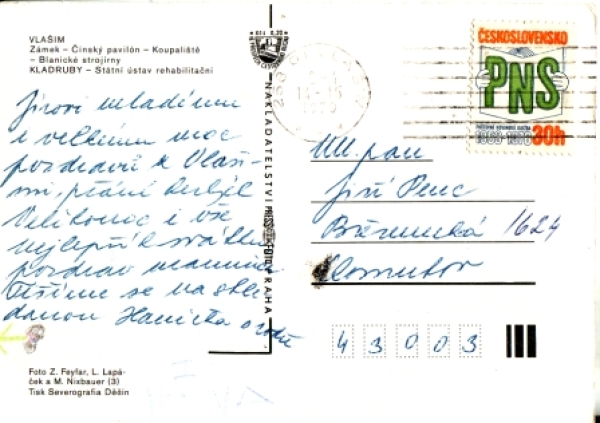 VLAŠIM
Zámek – Čínský pavilón – Koupaliště
– Blanické strojírny
KLADRUBY – Státní ústav rehabilitační
Jirovi mladšímu
i velkému moc
pozdravů z Vlaši-
mi, přání hezkých
Velikonoc i vše
nejlepší k svátku
pozdrav mamince
Těšíme se na shle
danou Hanička s rodi
Foto Z. Feyfar, L. Lapá-
ček a M. Nixbauer (3)
Tisk Severografia Děčín
NAKLADATELSTVÍ PRESSFOTO PRAHA
ČESKOSLOVENSKO
PNS
POŠTOVNÍ NOVINOVÁ SLUŽBA
1953-1978 30h
Vážený pan
Jiří Penc
Březenecká 1624
Chomutov
43003